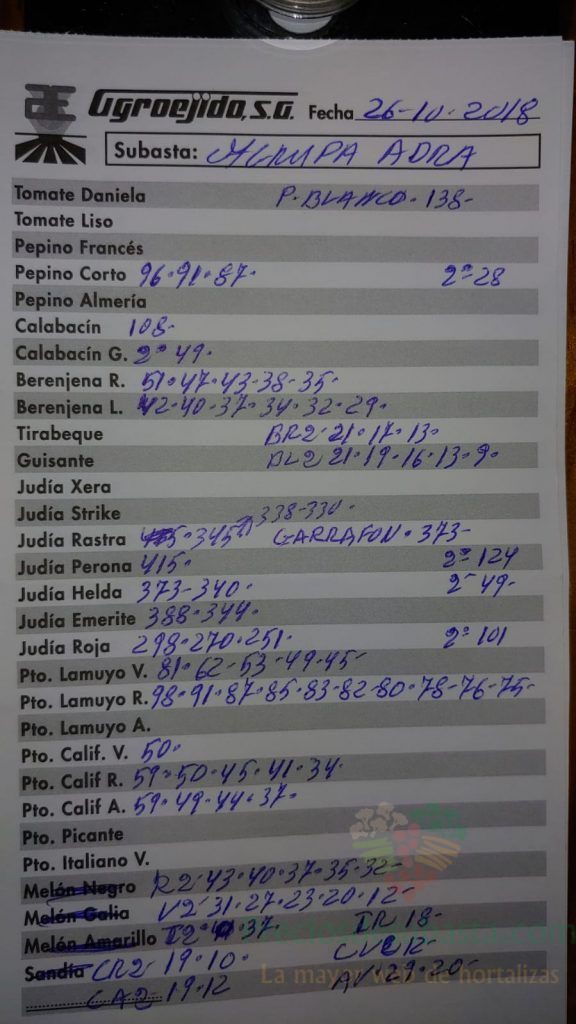 Agroejido, S.A. Fecha 26-10-2018
Subasta: AGRUPA ADRA
Tomate Daniela P. BLANCO · 138-
Tomate Liso
Pepino Francés
Pepino Corto 96·91·87· 2ª 28
Pepino Almería
Calabacín 108-
Calabacín G. 2ª 49·
Berenjena R. 51·47·43-38-35-
Berenjena L. 42-40·37·34·32·29-
Tirabeque BR2·21·17·13-
Guisante BL2 21·19·16·13·9-
Judía Xera
Judía Strike 338-330·
Judía Rastra 345 GARRAFON · 373-
Judía Perona 415· 2ª 124
Judía Helda 373-340· 2ª 49-
Judía Emerite 388·344-
Judía Roja 298·270·251· 2ª 101
Pto. Lamuyo V. 81·62-53-49-45-
Pto. Lamuyo R. 98·91·87·85·83-82-80·78-76-75-
Pto. Lamuyo A.
Pto. Calif. V. 50·
Pto. Calif R. 59·50·45·41·34
Pto. Calif A. 59·49·44·37·
Pto. Picante
Pto. Italiano V.
Melón Negro R2·43·40·37·35·32-
Melón Galia V2·31·27·23·20·12-
Melón Amarillo I2· 37· IR 18-
Sandía CR2 19·10· CV 12-
CA2·19·12 AV·29·20-
La mayor web de hortalizas